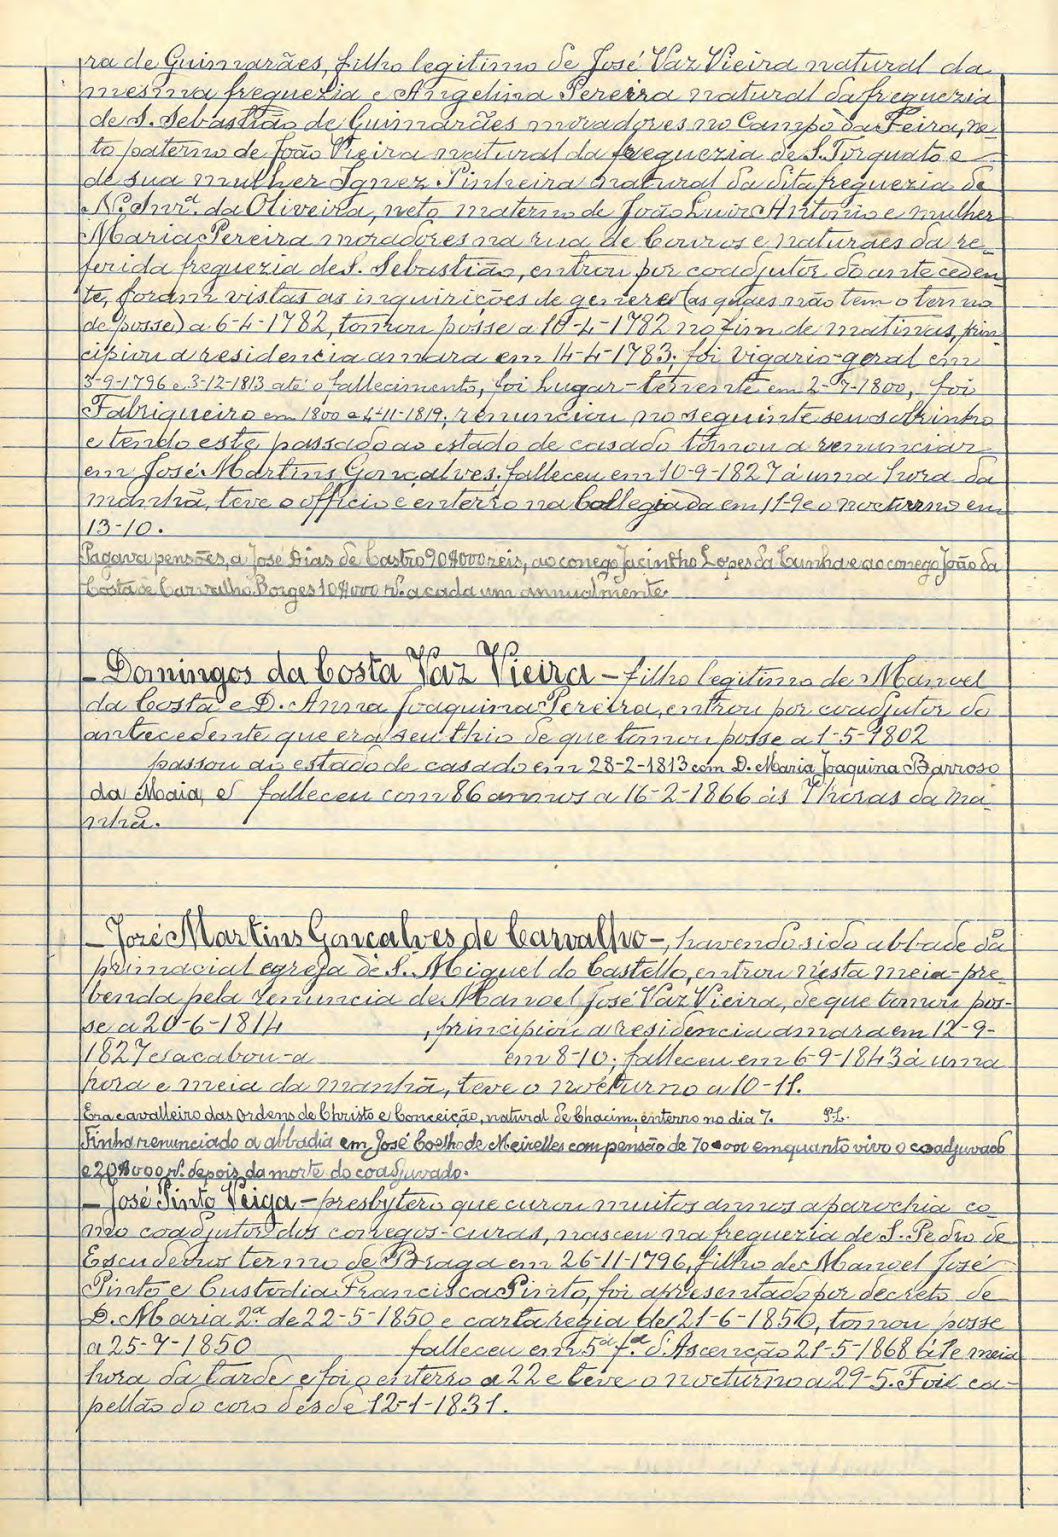 ra de Guimarães, filho legitimo de José Vaz Vieira natural da
mesma freguezia e Angelina Pereira natural da freguezia
de S. Sebastião de Guimarães moradores no Campo da Feira, ne-
to paterno de João Vieira natural da freguezia de S. Torquato e
de sua mulher Ignez Pinheira natural da dita freguezia de
N.ª Snr.ª da Oliveira, neto materno de João Luis Antonio e mulher
Maria Pereira moradores na rua de Couros e naturaes da re-
ferida freguezia de S. Sebastião, entrou por coadjutor do anteceden-
te, foram vistas as inquirições de genere (as quaes não tem o termo
de posse) a 6-4-1782, tomou pósse a 10-4-1782 no fim de matinas, prin-
cipiou a residencia amara em 14-4-1783; foi vigario-geral em
3-9-1796 e 3-12-1813 até o fallecimento, foi lugar-tenente em 2-7-1800, foi
Fabriqueiro em 1800 e 4-11-1819; renunciou no seguinte seu sobrinho
e tendo este passado ao estado de casado tornou a renunciar
em José Martins Gonçalves; falleceu em 10-9-1827 á uma hora da
manhã, teve o officio e enterro na Collegiada em 11-9 e o nocturno em
13-10.
Pagava pensões, a José Dias de Castro 90$000 reis, ao conego Jacintho Lopes da Cunha e ao conego João da
Costa de Carvalho Borges 10$000 rs. a cada um annualmente.
– Domingos da Costa Vaz Vieira – filho legitimo de Manoel
da Costa e D. Anna Joaquina Pereira, entrou por coadjutor do
antecedente que era seu thio de que tomou posse a 1-5-1802
passou ao estado de casado em 28-2-1813 com D. Maria Joaquina Barroso
da Maia, e falleceu com 86 annos a 16-2-1866 ás 7 horas da ma-
nhã.
– José Martins Gonçalves de Carvalho –, havendo sido abbade da
primacial egreja de S. Miguel do Castello, entrou n'esta meia-pre-
benda pela renuncia de Manoel José Vaz Vieira, de que tomou pos-
se a 20-6-1814 , principiou a residencia amara em 12-9-
1827 e acabou-a em 8-10; falleceu em 6-9-1843 á uma
hora e meia da manhã, teve o nocturno a 10-11.
Era cavalleiro das ordens de Christo e Conceição, natural de Chacim, enterro no dia 7. P.L.
Tinha renunciado a abbadia em José Coelho de Meirelles com pensão de 70$000 emquanto vivo o coadjuvado
e 20$000 rs. depois da morte do coadjuvado.
– José Pinto Veiga – presbytero que curou muitos annos a parochia co-
mo coadjutor dos conegos-curas, nasceu na freguezia de S. Pedro de
Escudeiros termo de Braga em 26-11-1796, filho de Manoel José
Pinto e Custodia Francisca Pinto, foi apresentado por decreto de
D. Maria 2.ª de 22-5-1850 e carta regia de 21-6-1850, tomou posse
a 25-7-1850 falleceu em 5.ª f.ª d'Ascenção 21-5-1868 á 1 e meia
hora da tarde e foi o enterro a 22 e teve o nocturno a 29-5. Foi ca-
pellão do coro désde 12-1-1831.